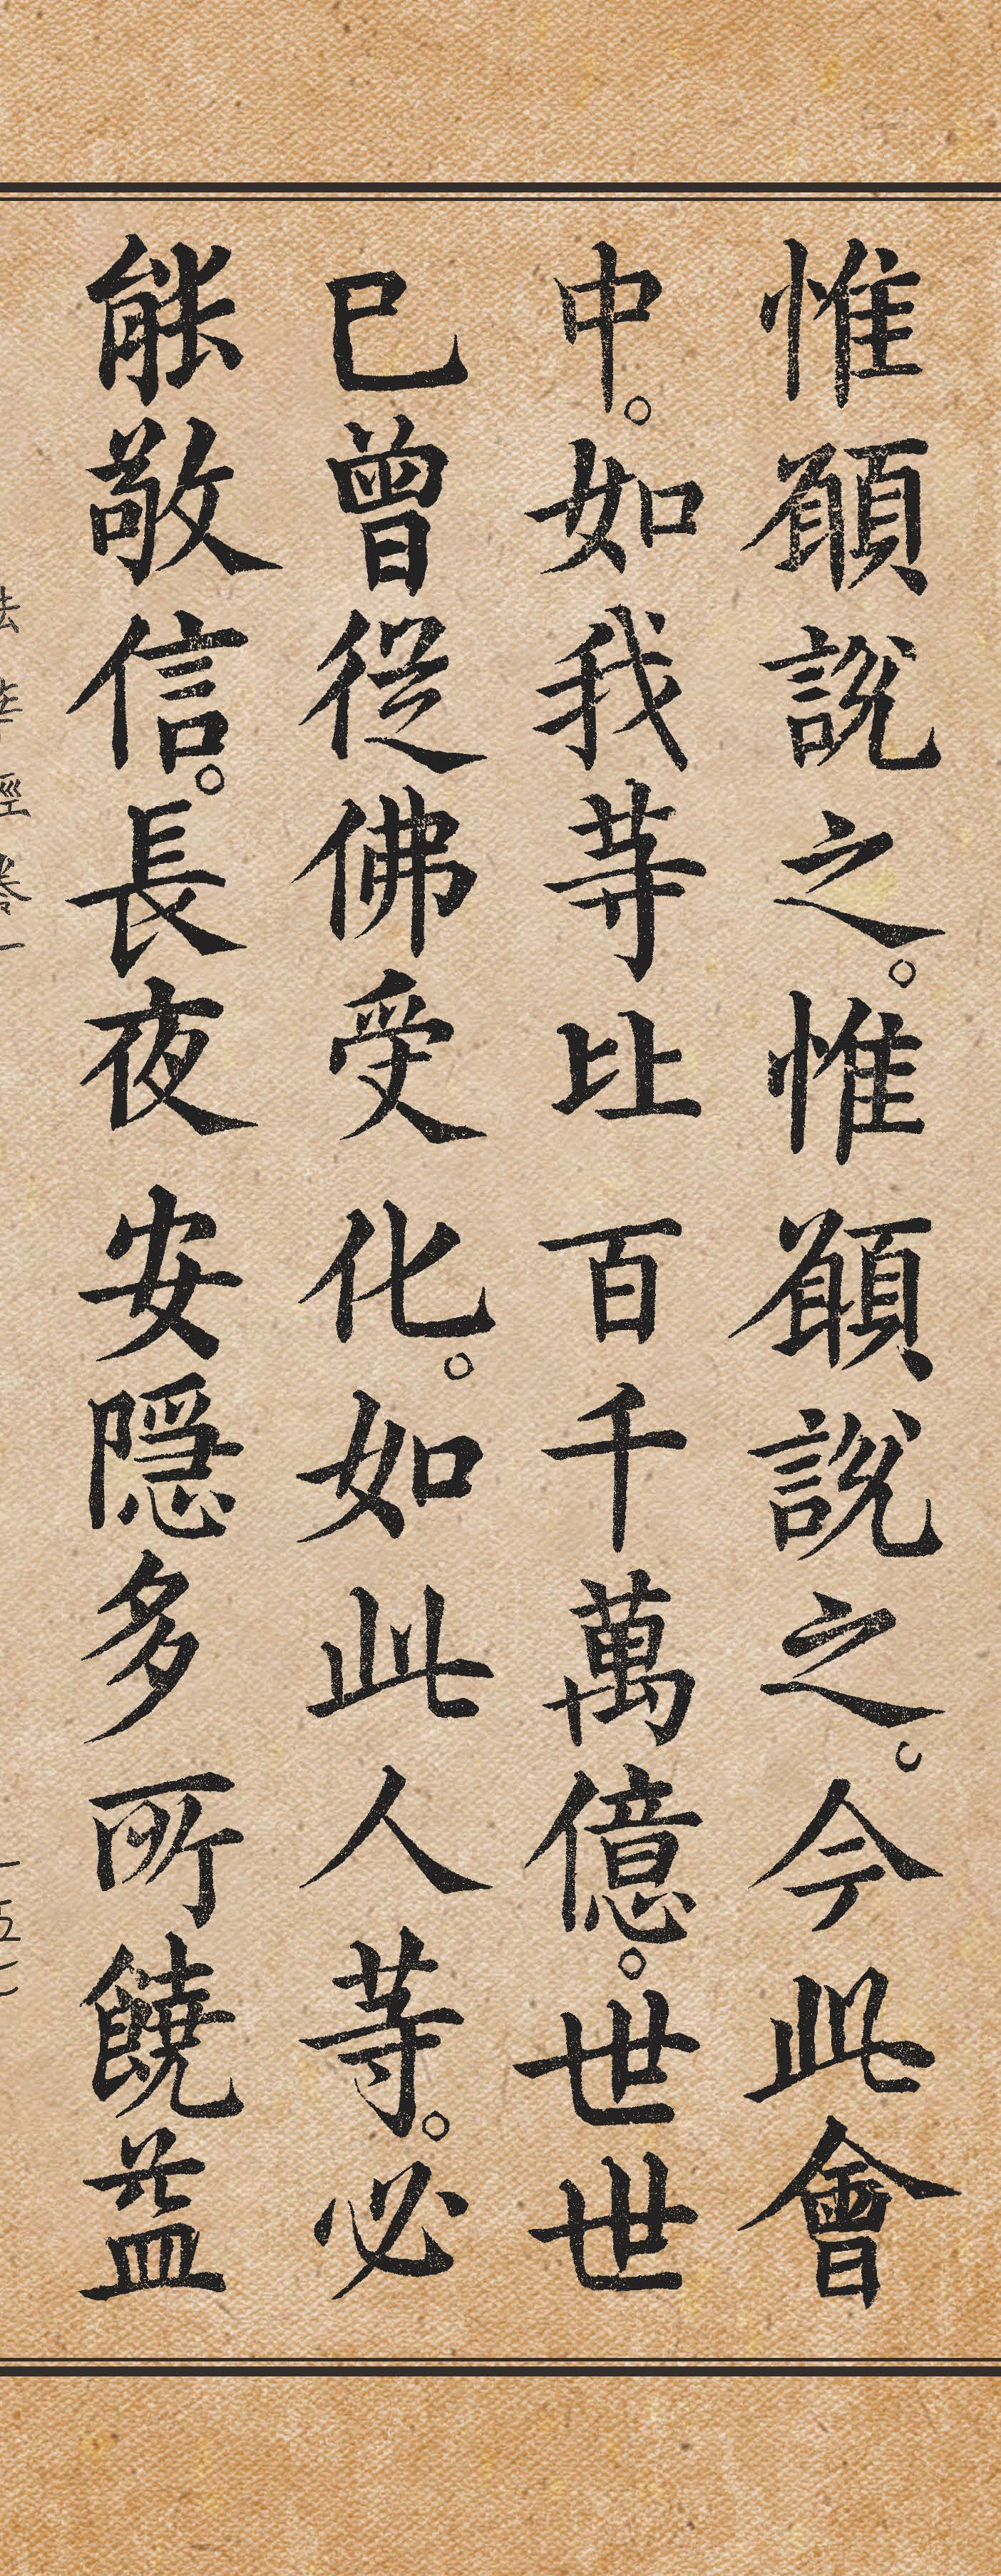 惟願說之。惟願說之。今此會
中。如我等比百千萬億。世世
已曾從佛受化。如此人等。必
能敬信。長夜安隱多所饒益
法華經卷一